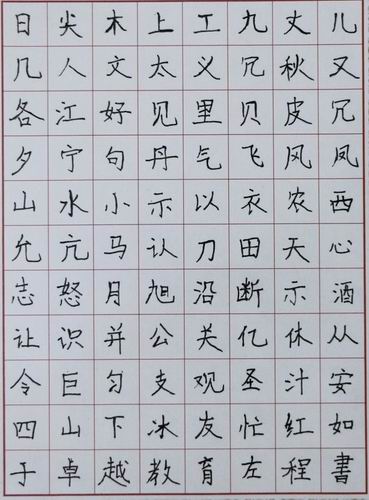 日尖木上工九丈儿
几人文太义冗秋又
各江好见里贝皮冗
夕宁句丹气飞风凤
山水小示以衣农西
允亢马认刀田天心
志怒月旭沿断示酒
让识并公关亿休从
令巨匀支观圣汁安
四山下冰友忙红如
于卓越教育左程書